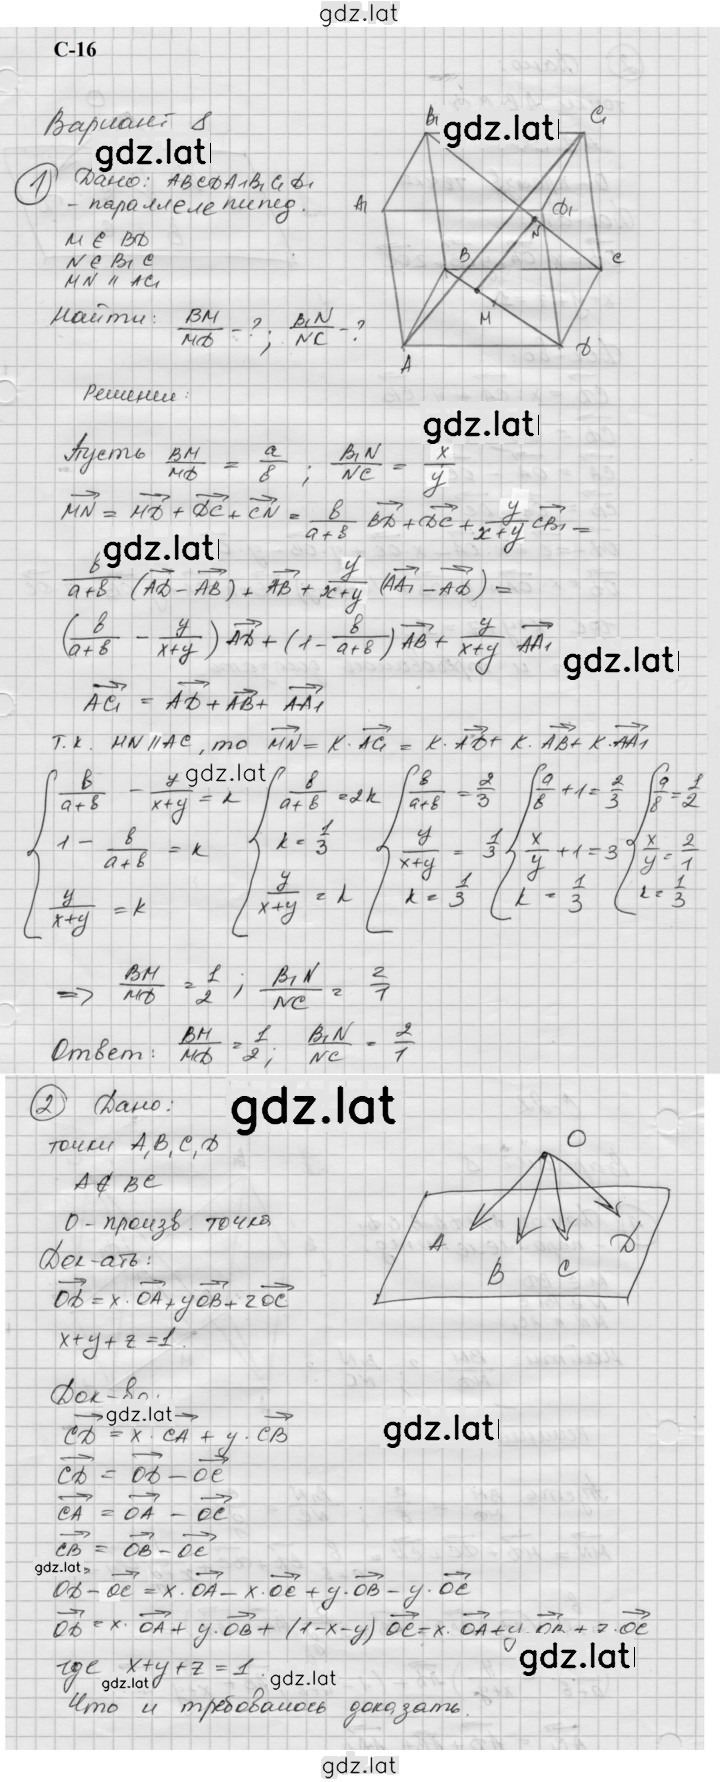 gdz.lat
С-16
Вариант 8
gdz.lat
gdz.lat
1 Дано: ABCDA1B1C1D1
- параллелепипед.
M ∈ BD
N ∈ B1C
MN || AC1
Найти: BM/MD - ?; B1N/NC - ?
B1 C1 A1 D1 N B C M A D
Решение:
gdz.lat
Пусть BM/MD = a/в ; B1N/NC = x/y
MN = MD + DC + CN = в/(a+в) BD + DC + y/(x+y) CB1 =
gdz.lat
в/(a+в) (AD - AB) + AB + y/(x+y) (AA1 - AD) =
(в/(a+в) - y/(x+y)) AD + (1 - в/(a+в)) AB + y/(x+y) AA1
gdz.lat
AC1 = AD + AB + AA1
т.к. MN || AC, то MN = k · AC1 = k · AD + k · AB + k · AA1
gdz.lat
{ в/(a+в) - y/(x+y) = k { в/(a+в) = 2k { в/(a+в) = 2/3 { a/в + 1 = 2/3 { a/в = 1/2
1 - в/(a+в) = k k = 1/3 y/(x+y) = 1/3 x/y + 1 = 3 x/y = 2/1
y/(x+y) = k y/(x+y) = k k = 1/3 k = 1/3 k = 1/3
=> BM/MD = 1/2 ; B1N/NC = 2/1
Ответ: BM/MD = 1/2; B1N/NC = 2/1
2 Дано:
gdz.lat
точки A, B, C, D
A ∉ BC
O - произв. точка
O A B C D
Док-ать:
OD = x · OA + yOB + zOC
x + y + z = 1.
Док-во:
gdz.lat
CD = x · CA + y · CB
gdz.lat
CD = OD - OC
CA = OA - OC
CB = OB - OC
gdz.lat
OD - OC = x · OA - x · OC + y · OB - y · OC
OD = x · OA + y · OB + (1 - x - y) OC = x · OA + y · OB + z · OC
gdz.lat
где x + y + z = 1.
gdz.lat
Что и требовалось доказать.
gdz.lat